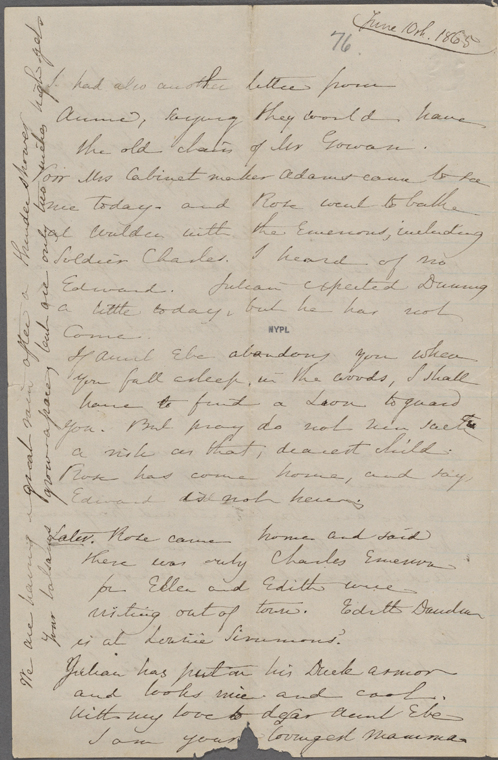 June 10th. 1865
76.
I had also another letter from
Annie, saying they would have
the old chairs of Mr Gowan.
Mrs Cabinet maker Adams came to see
me today and Rose went to bathe
at Walden with the Emersons, including
Soldier Charles. I heard of no
Edward. Julian expected Dunning
a little today, but he has not
come.
NYPL
If Aunt Ebe abandons you when
you fall asleep in the woods, I shall
have to find a Lion to guard
you. But pray do not run such
a risk as that, dearest child.
Rose has come home, and says
Edward is not here.
Later. Rose came home and said
there was only Charles Emerson
for Ellen and Edith were
visiting out of town. Edith
is at Louise Simmons'.
Julian has put on his Duck armor
and looks nice and cool.
With my love to dear Aunt Ebe
I am your lovingest mamma
We are having a great rain after a thunder shower
Your balsams grow apace, but are only two inches high yet